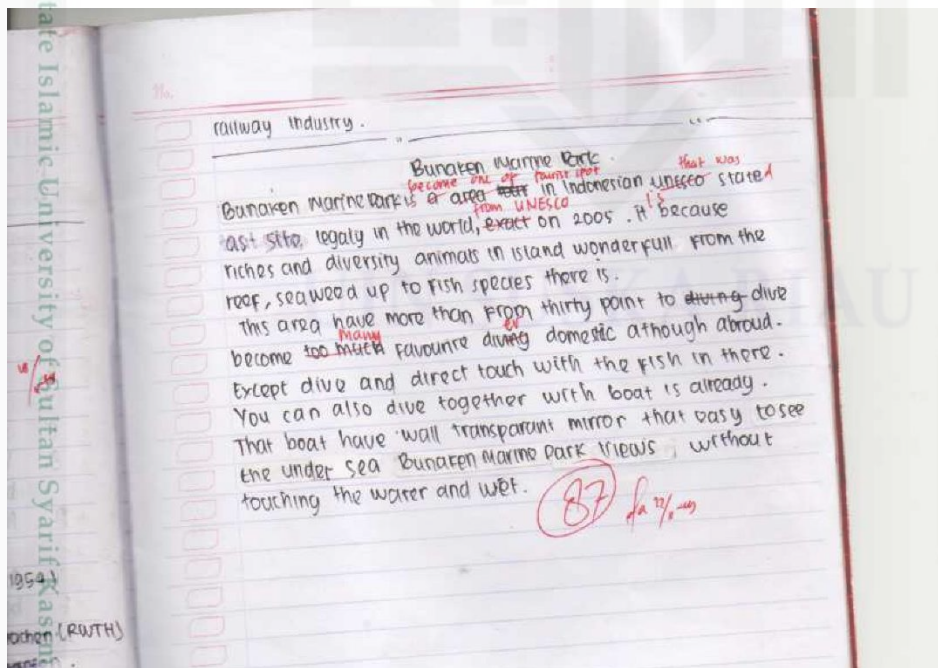 No.
railway industry.
Bunaken Marine Park.
become one of tourist spot that was
Bunaken Marine Park is a area in Indonesian unesco stated
from UNESCO is
ast site, legaly in the world, exact on 2005. it because
riches and diversity animals in island wonderfull from the
reef, seaweed up to fish species there is.
This area have more than from thirty point to diving dive
Many er
become too much favounre diving domestic athough abroud.
Except dive and direct touch with the fish in there.
You can also dive together with boat is already.
That boat have wall transparant mirror that easy to see
the under sea Bunaken Marine Park views, without
touching the water and wet.
87
tate Islamic University of Sultan Syarif Kasim
KA RIAU
1959)
achen (RWTH)